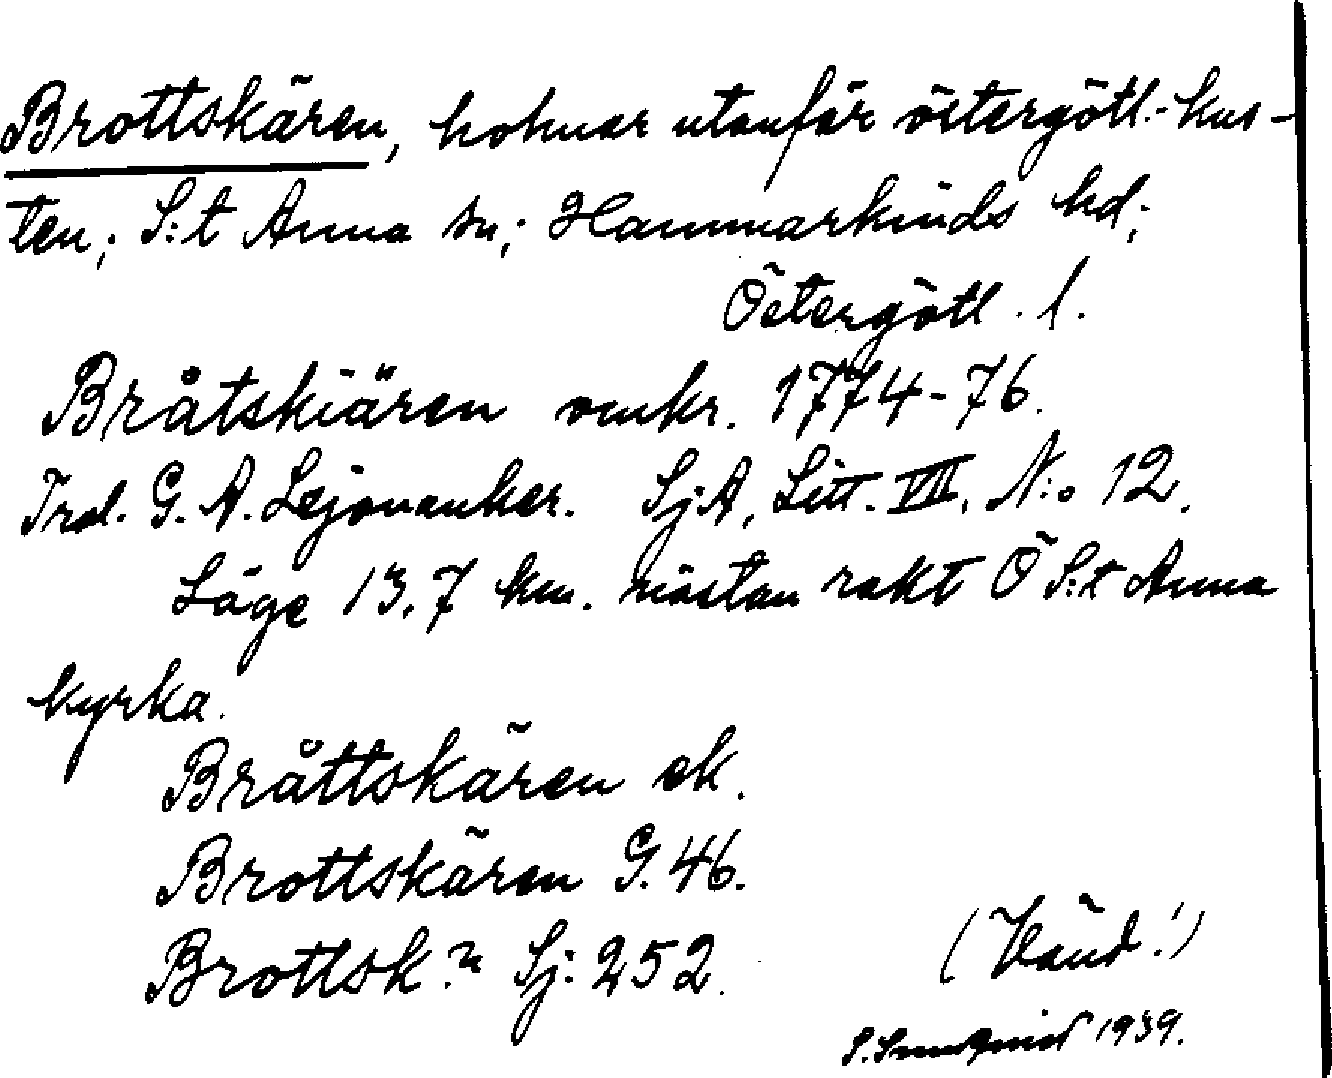 Brottskären, holmar utanför östergötl. kus-
ten; S:t Anna sn; Hammarkinds hd;
Östergötl. l.
Bråtskiären omkr. 1774-76.
Trol. G. A. Lejonanker. SjA, Litt. VII, N:o 12.
Läge 13,7 km. nästan rakt Ö S:t Anna
kyrka.
Bråttskären ek.
Brottskären G. 46.
Brottsk:n Sj: 252.
(Vänd!)
1939.